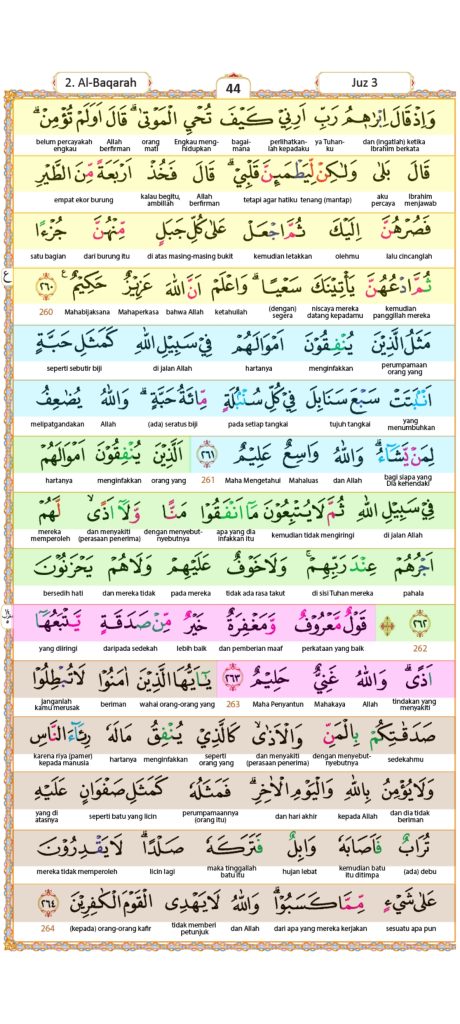 2. Al-Baqarah 44 Juz 3
وَاِذْ قَالَ اِبْرٰهٖمُ رَبِّ اَرِنِيْ كَيْفَ تُحْيِ الْمَوْتٰىۗ قَالَ اَوَلَمْ تُؤْمِنْۗ
dan (ingatlah) ketika Ibrahim berkata ya Tuhan-ku perlihatkan-lah kepadaku bagai-mana Engkau meng-hidupkan orang mati Allah berfirman belum percayakah engkau
قَالَ بَلٰى وَلٰكِنْ لِّيَطْمَىِٕنَّ قَلْبِيْۗ قَالَ فَخُذْ اَرْبَعَةً مِّنَ الطَّيْرِ
Ibrahim menjawab aku percaya tetapi agar hatiku tenang (mantap) Allah berfirman kalau begitu, ambillah empat ekor burung
فَصُرْهُنَّ اِلَيْكَ ثُمَّ اجْعَلْ عَلٰى كُلِّ جَبَلٍ مِّنْهُنَّ جُزْءًا
lalu cincanglah olehmu kemudian letakkan di atas masing-masing bukit dari burung itu satu bagian
ثُمَّ ادْعُهُنَّ يَأْتِيْنَكَ سَعْيًاۗ وَاعْلَمْ اَنَّ اللّٰهَ عَزِيْزٌ حَكِيْمٌ ࣖ ٢٦٠
ع
kemudian panggillah mereka niscaya mereka datang kepadamu (dengan) segera ketahuilah bahwa Allah Mahaperkasa Mahabijaksana 260
مَثَلُ الَّذِيْنَ يُنْفِقُوْنَ اَمْوَالَهُمْ فِيْ سَبِيْلِ اللّٰهِ كَمَثَلِ حَبَّةٍ
perumpamaan orang yang menginfakkan hartanya di jalan Allah seperti sebutir biji
اَنْۢبَتَتْ سَبْعَ سَنَابِلَ فِيْ كُلِّ سُنْۢبُلَةٍ مِّائَةُ حَبَّةٍۗ وَاللّٰهُ يُضٰعِفُ
yang menumbuhkan tujuh tangkai pada setiap tangkai (ada) seratus biji Allah melipatgandakan
لِمَنْ يَّشَاۤءُۗ وَاللّٰهُ وَاسِعٌ عَلِيْمٌ ٢٦١ اَلَّذِيْنَ يُنْفِقُوْنَ اَمْوَالَهُمْ
bagi siapa yang Dia kehendaki dan Allah Mahaluas Maha Mengetahui 261 orang yang menginfakkan hartanya
فِيْ سَبِيْلِ اللّٰهِ ثُمَّ لَا يُتْبِعُوْنَ مَآ اَنْفَقُوْا مَنًّا وَّلَآ اَذًىۙ لَّهُمْ
di jalan Allah kemudian tidak mengiringi apa yang dia infakkan itu dengan menyebut-nyebutnya dan menyakiti (perasaan penerima) mereka memperoleh
اَجْرُهُمْ عِنْدَ رَبِّهِمْۚ وَلَا خَوْفٌ عَلَيْهِمْ وَلَا هُمْ يَحْزَنُوْنَ
pahala di sisi Tuhan mereka tidak ada rasa takut pada mereka dan mereka tidak bersedih hati
٢٦٢ ۞ قَوْلٌ مَّعْرُوْفٌ وَّمَغْفِرَةٌ خَيْرٌ مِّنْ صَدَقَةٍ يَّتْبَعُهَآ
262 perkataan yang baik dan pemberian maaf lebih baik daripada sedekah yang diiringi
اَذًىۗ وَاللّٰهُ غَنِيٌّ حَلِيْمٌ ٢٦٣ يٰٓاَيُّهَا الَّذِيْنَ اٰمَنُوْا لَا تُبْطِلُوْا
tindakan yang menyakiti Allah Mahakaya Maha Penyantun 263 wahai orang-orang yang beriman janganlah kamu merusak
صَدَقٰتِكُمْ بِالْمَنِّ وَالْاَذٰىۙ كَالَّذِيْ يُنْفِقُ مَالَهٗ رِئَاۤءَ النَّاسِ
sedekahmu dengan menyebut-nyebutnya dan menyakiti (perasaan penerima) seperti orang yang menginfakkan hartanya karena riya (pamer) kepada manusia
وَلَا يُؤْمِنُ بِاللّٰهِ وَالْيَوْمِ الْاٰخِرِۗ فَمَثَلُهٗ كَمَثَلِ صَفْوَانٍ عَلَيْهِ
dan dia tidak beriman kepada Allah dan hari akhir perumpamaannya (orang itu) seperti batu yang licin yang di atasnya
تُرَابٌ فَاَصَابَهٗ وَابِلٌ فَتَرَكَهٗ صَلْدًاۗ لَا يَقْدِرُوْنَ
(ada) debu kemudian batu itu ditimpa hujan lebat maka tinggallah batu itu licin lagi mereka tidak memperoleh
عَلٰى شَيْءٍ مِّمَّا كَسَبُوْاۗ وَاللّٰهُ لَا يَهْدِى الْقَوْمَ الْكٰفِرِيْنَ ٢٦٤
sesuatu apa pun dari apa yang mereka kerjakan dan Allah tidak memberi petunjuk (kepada) orang-orang kafir 264